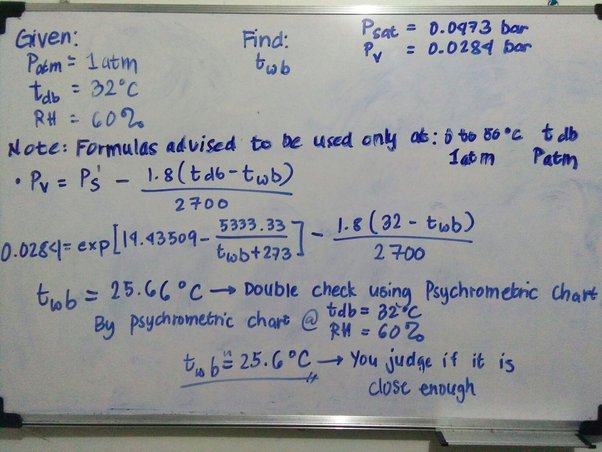 Given:
Patm = 1atm
tdb = 32°C
RH = 60%
Find:
twb
Psat = 0.0473 bar
Pv = 0.0284 bar
Note: Formulas advised to be used only at: 0 to 50°C tdb
1atm Patm
• Pv = Ps' - 1.8(tdb-twb)/2700
0.0284= exp[14.43509 - 5333.33/twb+273] - 1.8(32-twb)/2700
twb = 25.66°C → Double check using Psychrometric Chart
By psychrometric chart @ tdb = 32°C
RH = 60%
twb ≈ 25.6°C → You judge if it is
close enough